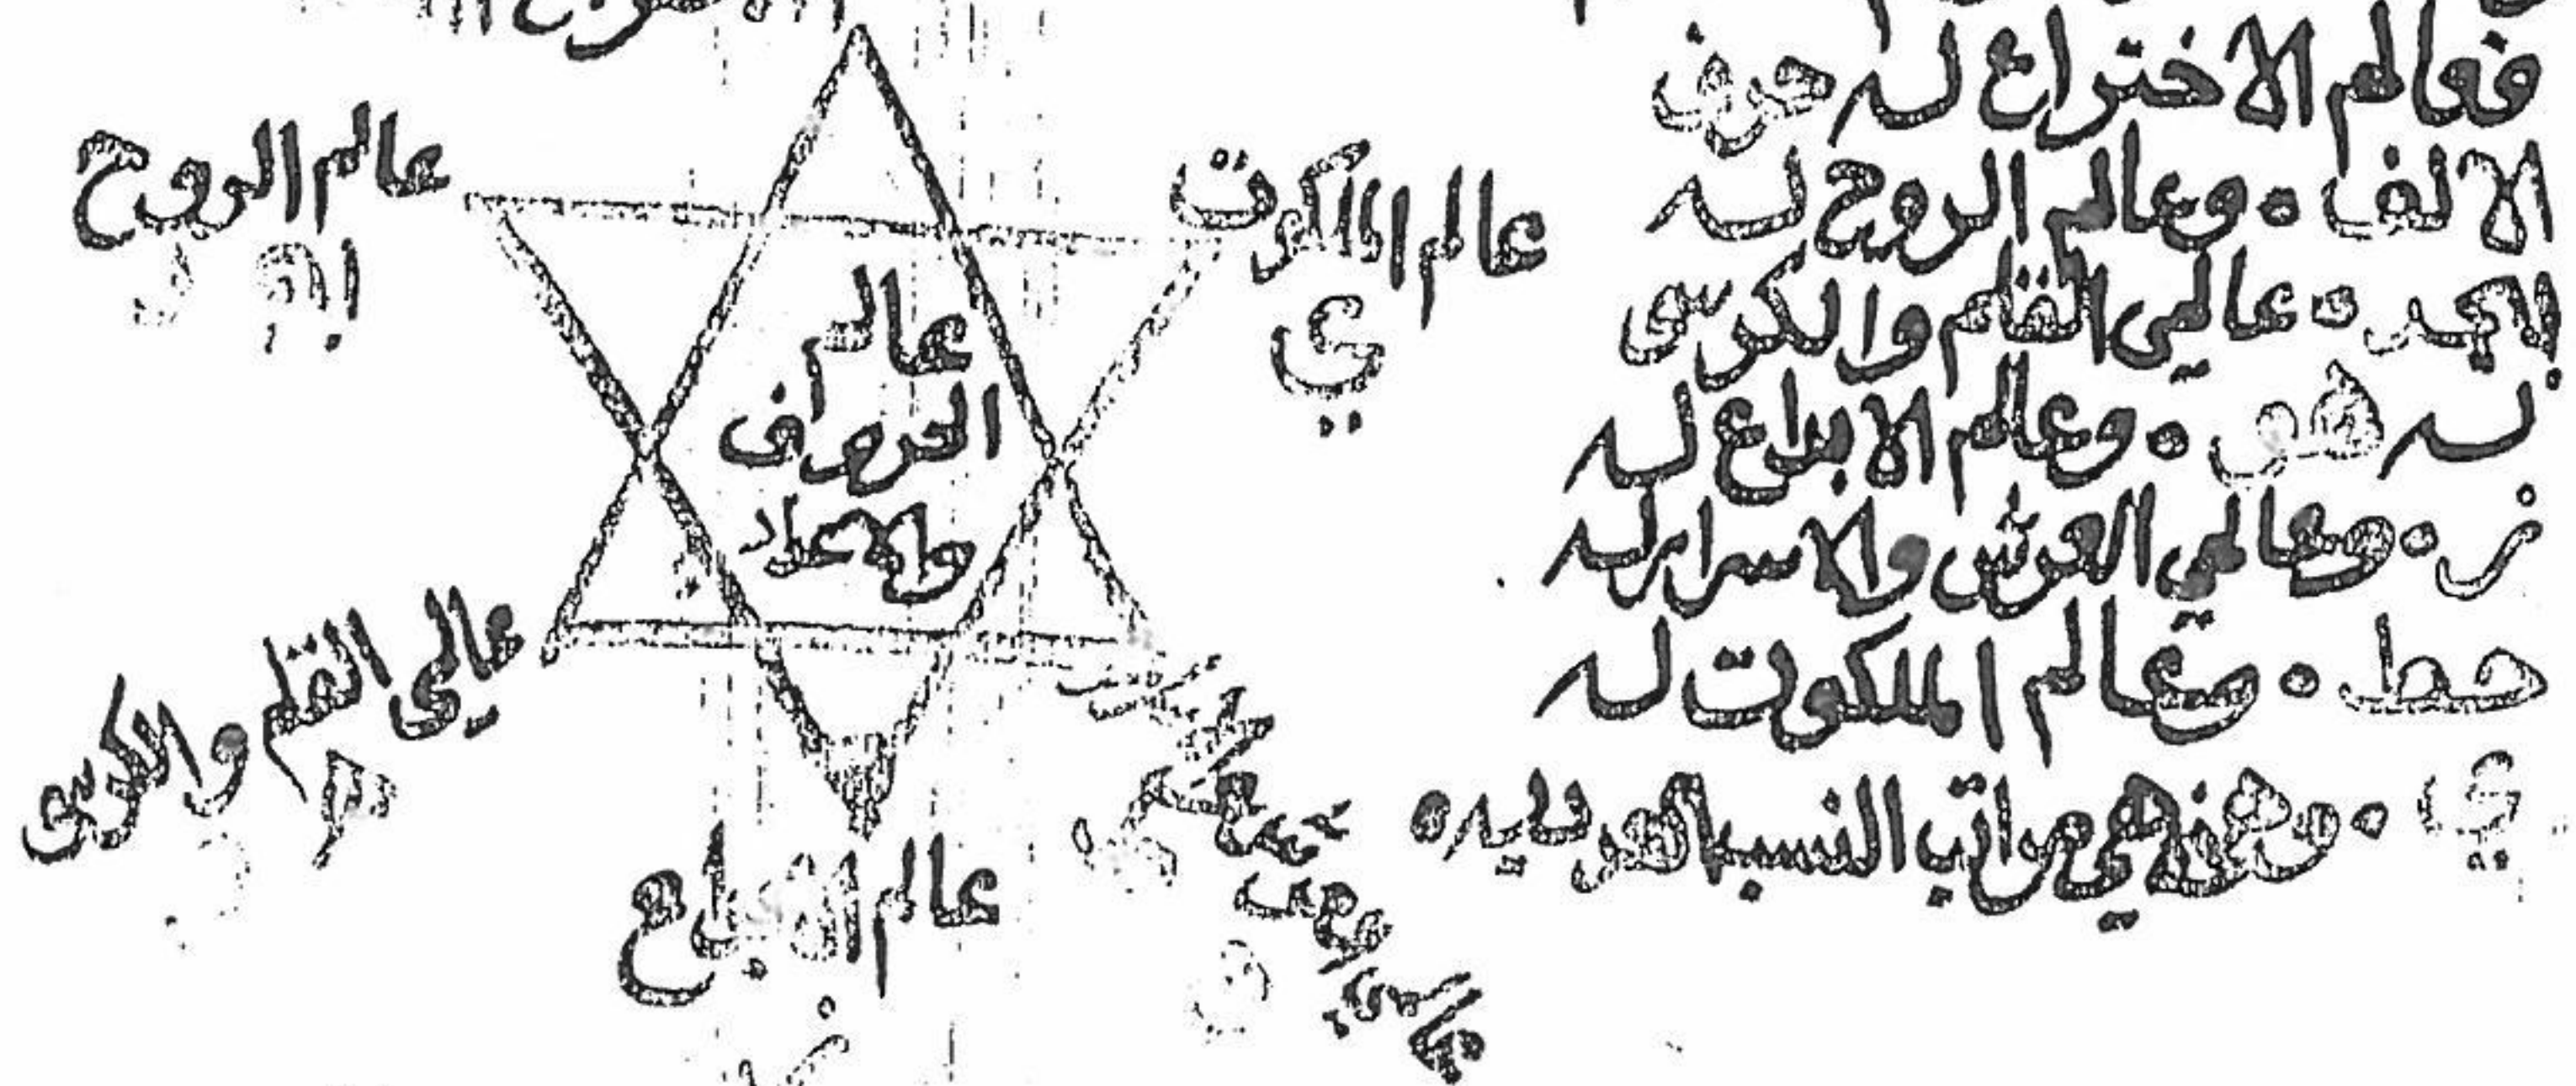 فعالم الاختراع له حرف
الالف • وعالم الروح له
ابجد • عالمي القلم والكرسي
له هو • وعالم الابداع له
ز • وعالمي العرش والاسرار له
حط • وعالم الملكوت له
ي • وهذه هي مراتب النسب
عالم الملكوت
ي
عالم الروح
عالم
الحروف
والاعداد
عالمي القلم والكرسي
عالم الابداع
ز